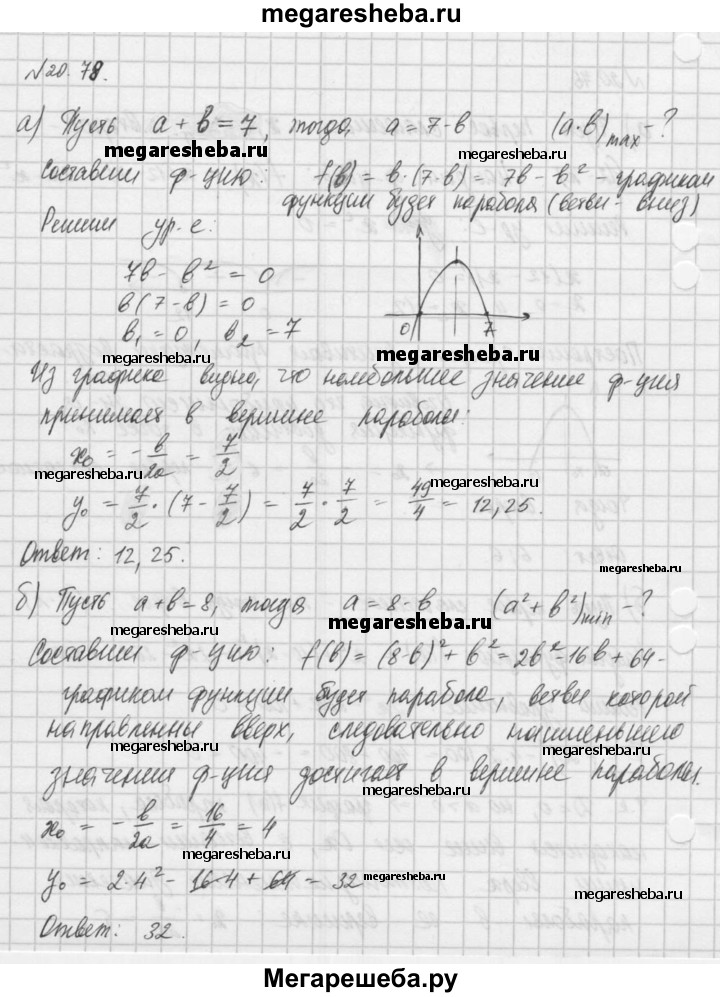 megaresheba.ru
№20.78.
а) Пусть a + b = 7, тогда a = 7-b (a·b)max - ?
megaresheba.ru megaresheba.ru
Составим ф-цию: f(b) = b·(7-b) = 7b - b² - графиком
функции будет парабола (ветви - вниз)
Решим ур-е:
7b - b² = 0
b(7-b) = 0
b₁ = 0, b₂ = 7
0 7
megaresheba.ru megaresheba.ru
Из графика видно, что наибольшее значение ф-ция
принимает в вершине параболы:
x₀ = - b/2a = 7/2
megaresheba.ru megaresheba.ru
y₀ = 7/2 · (7 - 7/2) = 7/2 · 7/2 = 49/4 = 12,25.
Ответ: 12,25.
megaresheba.ru
б) Пусть a+b=8, тогда a = 8-b (a²+b²)min - ?
megaresheba.ru megaresheba.ru
Составим ф-цию: f(b) = (8-b)² + b² = 2b² - 16b + 64 -
графиком функции будет парабола, ветви которой
направленны вверх, следовательно наименьшего
megaresheba.ru megaresheba.ru
значения ф-ция достигает в вершине параболы.
megaresheba.ru
x₀ = - b/2a = 16/4 = 4
megaresheba.ru
y₀ = 2·4² - 16·4 + 64 = 32
megaresheba.ru
Ответ: 32.
megaresheba.ru
Мегарешеба.ру